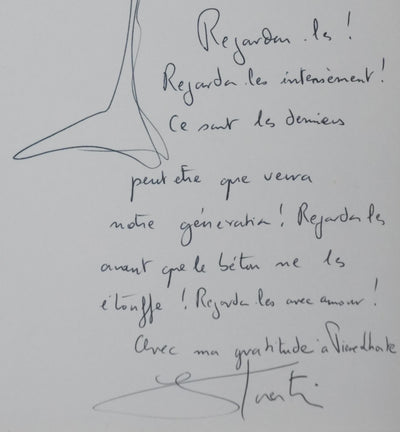 Regardez-les !
Regardez-les intensément !
Ce sont les derniers
peut être que verra
notre génération ! Regardez les
avant que le béton ne les
étouffe ! Regardez-les avec amour !
Avec ma gratitude à